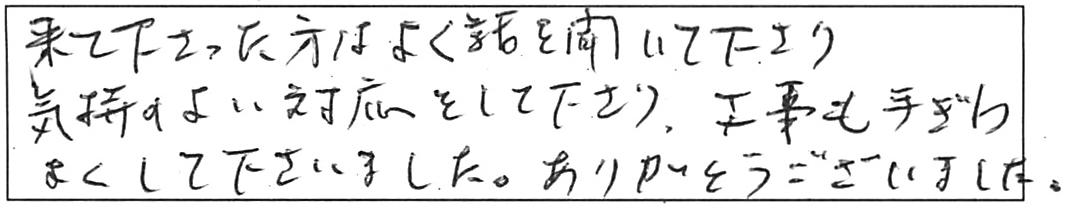 来て下さった方はよく話を聞いて下さり
気持のよい対応をして下さり、工事も手ぎわ
よくして下さいました。ありがとうございました。